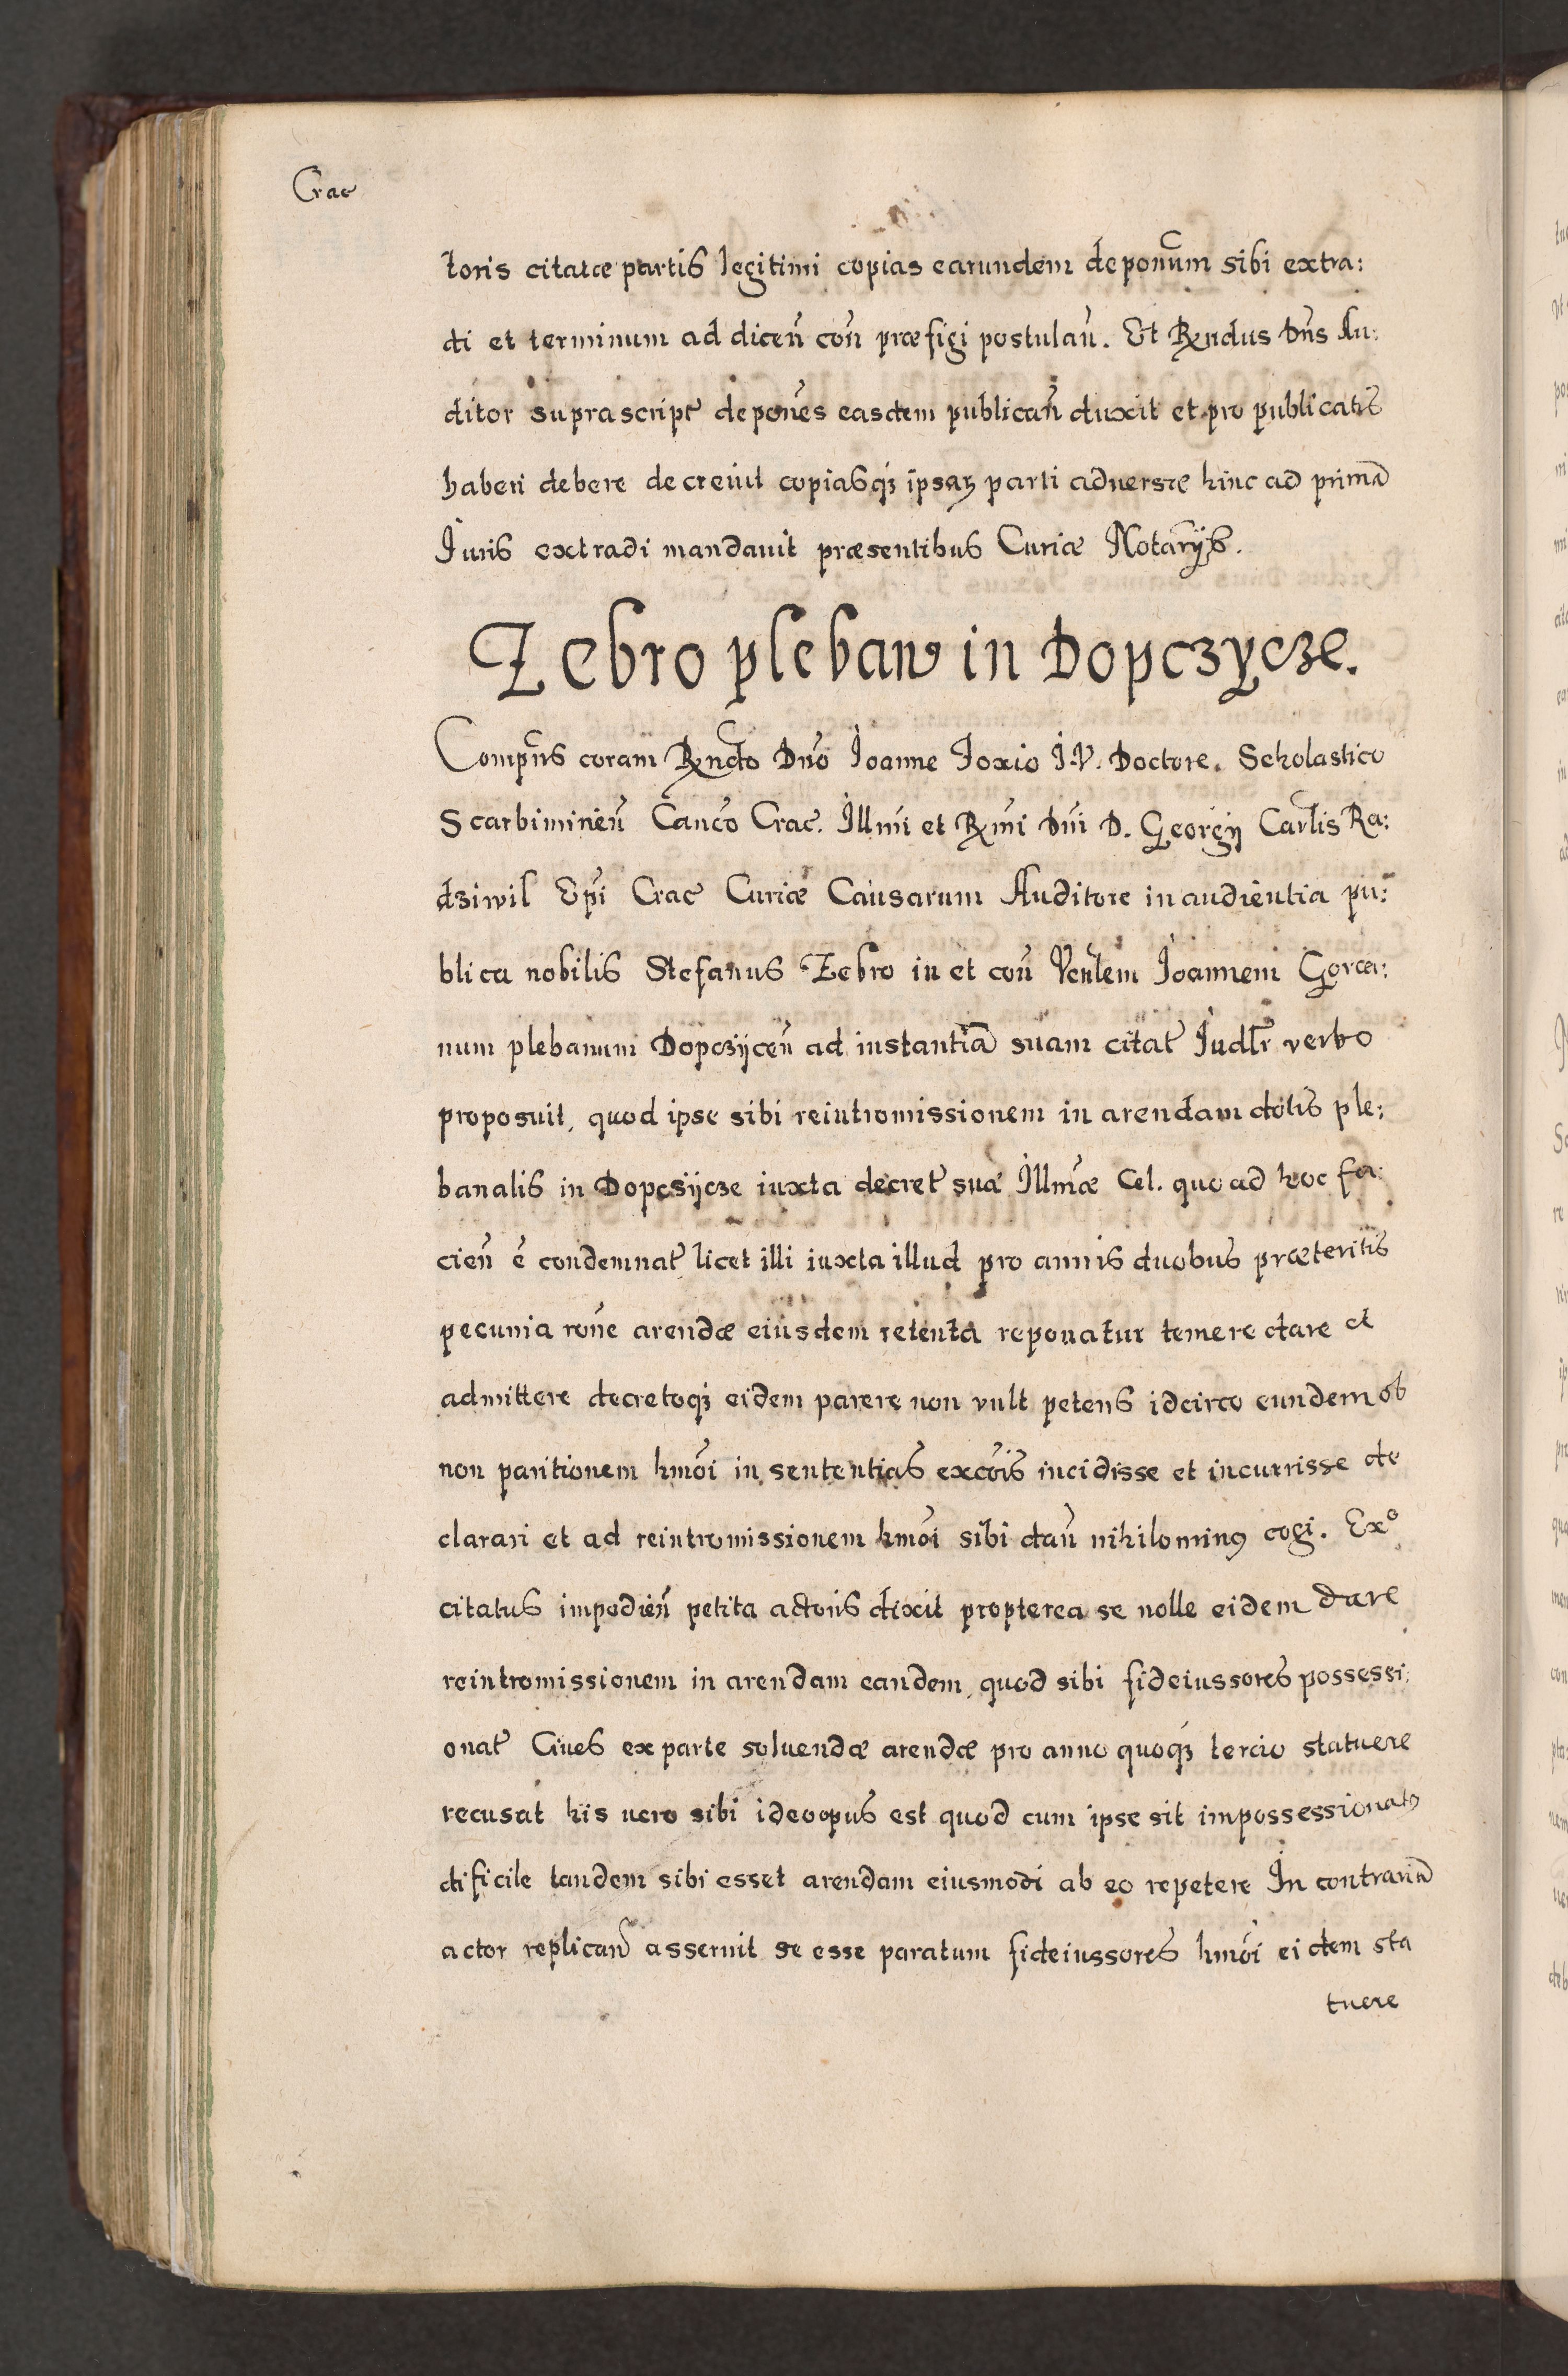 Crac
toris citatæ partis legitimi copias earundem deponūm sibi extra:
di et terminum ad dicen̄ con̄ præfigi postulaū. Et Rndus Dn̄s Au:
ditor suprascript̄ depon̄es easdem publican̄ duxit et pro publicatis
haberi debere decreuit copiasq3 ipsaꝝ parti aduersæ hinc ad primā
Iuris extradi mandauit præsentibus Curiæ Notarijs.
Zebro pleban9 in Dopczycze.
Compn̄s coram Rn̄do Dn̄o Ioanne Foxio I.V. Doctore. Scholastico
Scarbimirien̄ Canco Crac̄. Illmi et Rmi Dn̄i D. Georgij Carlis Ra:
dziwil Epi Crac̄ Curiæ Causarum Auditore in audientia pu:
blica nobilis Stefanus Zebro in et con̄ Venlem Ioannem Gorca:
num plebanum Dopczijcen̄ ad instantiā suam citat̄ Iudlr̄ verbo
proposuit, quod ipse sibi reintromissionem in arendam dotis ple:
banalis in Dopcsijcze iuxta decret̄ suæ Illmæ Cel. quo ad hoc fa:
cien̄ ē condemnat̄ licet illi iuxta illud pro annis duobus præteritis
pecunia rōne arendæ eiusdem retenta reponatur temere dare et
admittere decretoq3 eidem parere non vult petens idcirco eundem ob
non paritionem hmōi in sententias excōis incidisse et incurrisse de
clarari et ad reintromissionem hmōi sibi dan̄ nihilomin9 cogi. Exº
citatus impedien̄ petita actoris dixit propterea se nolle eidem dare
reintromissionem in arendam eandem, quod sibi fideiussores possessi:
onat̄ Ciues ex parte soluendæ arendæ pro anno quoq3 tercio statuere
recusat his vero sibi ideo opus est quod cum ipse sit impossessionat9
dificile tandem sibi esset arendam eiusmodi ab eo repetere In contrariū
actor replican̄ asseruit se esse paratum fideiussores hmōi eidem sta
tuere